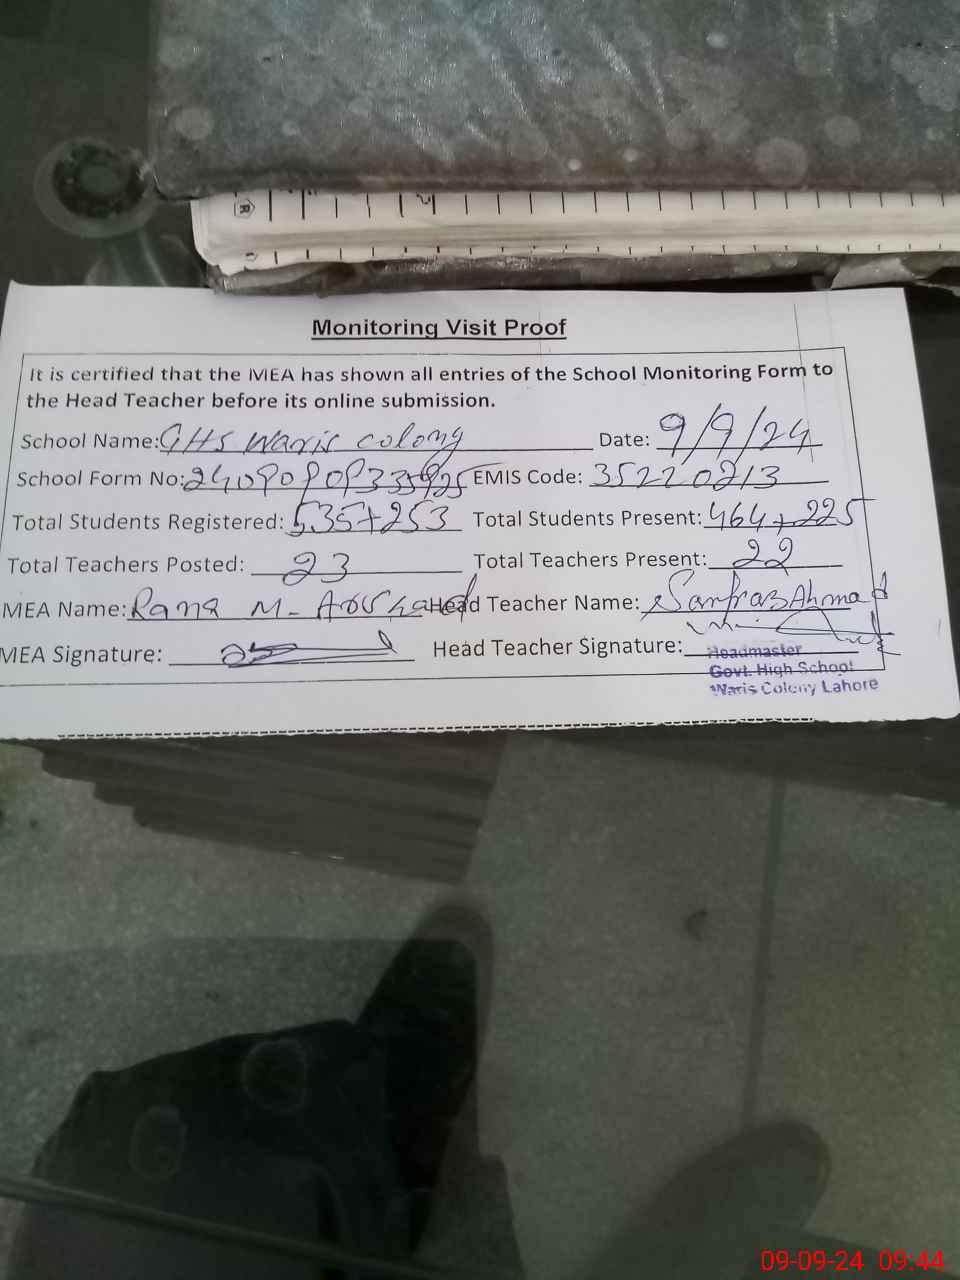 Monitoring Visit Proof
It is certified that the MEA has shown all entries of the School Monitoring Form to
the Head Teacher before its online submission.
School Name: GHS Waris colony Date: 9/9/24
School Form No: EMIS Code: 35220213
Total Students Registered: 535+253 Total Students Present: 464+225
Total Teachers Posted: 23 Total Teachers Present: 22
MEA Name: Rana M. Arshad Head Teacher Name: Sarfraz Ahmad
MEA Signature: Head Teacher Signature:
Headmaster
Govt. High School
Waris Colony Lahore
09-09-24 09:44